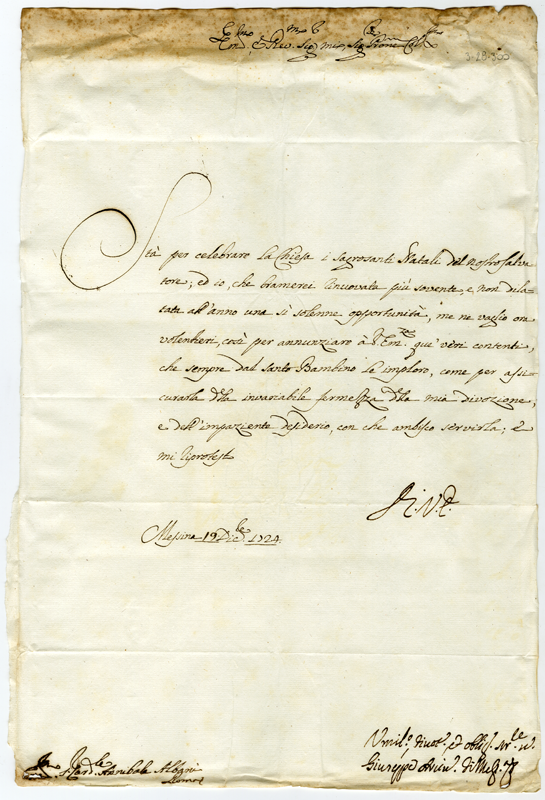 Em.mo e Rev.mo Sig.r mio Sig.r Pron.e Col.mo
Stà per celebrare la Chiesa i sagrosanti Natali del nostro Salva
tore; ed io, che bramerei rinuovata più sovente, e non dila-
tata all'anno una si solenne opportunità, me ne vaglio ora
volentieri, così per annunziare à V. Em.za que' veri contenti,
che sempre dal Santo Bambino le imploro, come per assi-
curarla della invariabile fermezza della mia divozione,
e dell'impaziente desiderio, con che ambisco servirla; e
mi riprotesto
Di V. E.
Messina 19 Dic.bre 1724
Umil.o divot.o et oblig.o
Giuseppe Arciv.o di Mess.a
Card.le Annibale Albani
Roma